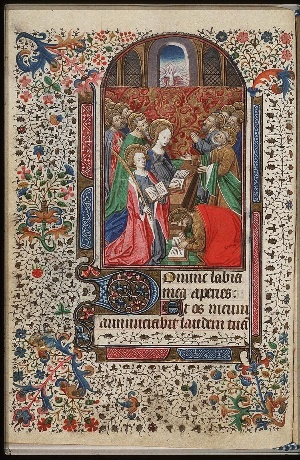 Domine labia
mea aperies:
Et os meum
annunciabit laudem tuã